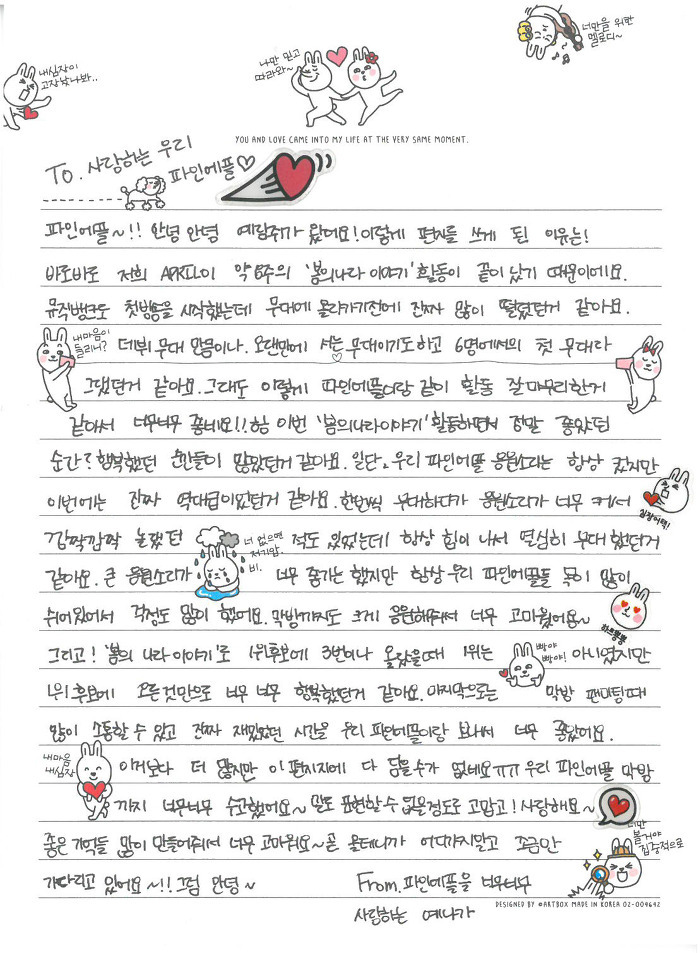 내심장이
고장났나봐..
나만 믿고
따라와~
너만을 위한
멜로디~
YOU AND LOVE CAME INTO MY LIFE AT THE VERY SAME MOMENT.
To. 사랑하는 우리
파인에플♡
파인에플~!! 안녕 안녕 예람쥐가 왔어요! 이렇게 편지를 쓰게 된 이유는!
바로바로 저희 APRIL이 약 6주의 '봄의나라 이야기' 활동이 끝이 났기 때문이에요.
뮤직뱅크로 첫방송을 시작했는데 무대에 올라가기전에 진짜 많이 떨렸던거 같아요.
내마음이
들리니?
데뷔 무대 만큼이나. 오랜만에 서는 무대이기도하고 6명에서의 첫 무대라
그랬던거 같아요. 그래도 이렇게 파인에플이랑 같이 활동 잘마무리한거
같아서 너무너무 좋네요!! 이번 '봄의나라이야기' 활동하면서 정말 좋았던
순간? 행복했던 순간들이 많았던거 같아요. 일단, 우리 파인에플 응원소리는 항상 컸지만
이번에는 진짜 역대급이었던거 같아요. 한번씩 무대하다가 응원소리가 너무 커서
심장어택!
깜짝깜짝 놀랐던 적도 있었는데 항상 힘이 나서 열심히 무대 했던거
너 없으면
저기압.
비.
같아요. 큰 응원소리가 너무 좋기는 했지만 항상 우리 파인에플들 목이 많이
쉬어있어서 걱정도 많이 했어요. 막방까지도 크게 응원해줘서 너무 고마웠어용~
하트뿅뿅
그리고! '봄의 나라 이야기'로 1위후보에 3번이나 올랐을때 1위는 아니였지만
빠야
빠야!
1위 후보에 오른것만으로 너무 너무 행복했던거 같아요. 마지막으로는 막방 팬미팅때
많이 소통할 수 있고 진짜 재밌었던 시간을 우리 파인에플이랑 보내서 너무 좋았어요.
내마음
내심장
이거보다 더 많지만 이 편지지에 다 담을수가 없네요ㅠㅠ 우리 파인에플 막방
까지 너무너무 수고했어요~ 말로 표현할 수 없을정도로 고맙고! 사랑해요~
좋은 기억들 많이 만들어줘서 너무 고마워요~ 곧 올테니까 어디가지말고 조금만
너만
볼거야
집중적으로
기다리고 있어요~!! 그럼 안녕~ From. 파인에플을 너무너무
DESIGNED BY ©ARTBOX MADE IN KOREA 02-004642
사랑하는 예나가